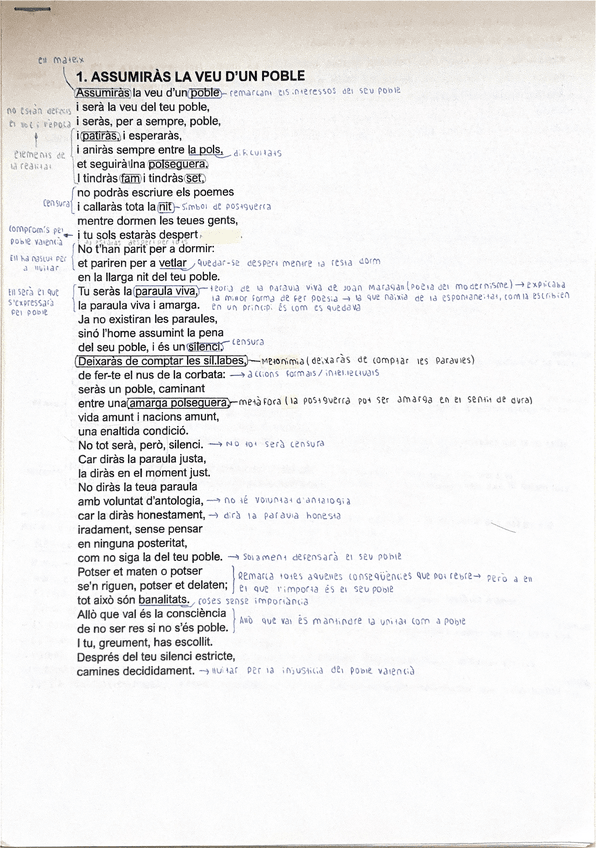 ell mateix
1. ASSUMIRÀS LA VEU D'UN POBLE
Assumiràs la veu d'un poble – remarcant els interessos del seu poble
i serà la veu del teu poble,
i seràs, per a sempre, poble,
no estàn definits
el lloc i l'època
elements de
la realitat
i patiràs, i esperaràs,
i aniràs sempre entre la pols, dificultats
et seguirà una polseguera.
I tindràs fam i tindràs set,
no podràs escriure els poemes
censura
i callaràs tota la nit – símbol de postguerra
mentre dormen les teues gents,
compromís pel
poble valencià
i tu sols estaràs despert
No t'han parit per a dormir:
Ell ha nascut per
a lluitar
et pariren per a vetlar quedar-se despert mentre la resta dorm
en la llarga nit del teu poble.
Ell serà el que
s'expressarà
pel poble
Tu seràs la paraula viva, teoria de la paraula viva de Joan Maragall (poeta del modernisme) → explicava
la paraula viva i amarga. la millor forma de fer poesia → la que naixia de la espontaneïtat, com la escribien
en un principi és com es quedava
Ja no existiran les paraules,
sinó l'home assumint la pena
del seu poble, i és un silenci. censura
Deixaràs de comptar les síl.labes, – Metonímia (deixaràs de comptar les paraules)
de fer-te el nus de la corbata: → accions formals / intel·lectuals
seràs un poble, caminant
entre una amarga polseguera, – metàfora (la postguerra pot ser amarga en el sentit de dura)
vida amunt i nacions amunt,
una enaltida condició.
No tot serà, però, silenci. → No tot serà censura
Car diràs la paraula justa,
la diràs en el moment just.
No diràs la teua paraula
amb voluntat d'antologia, → no té voluntat d'antalogia
car la diràs honestament, → dirà la paraula honesta
iradament, sense pensar
en ninguna posteritat,
com no siga la del teu poble. → Solament defensarà el seu poble
Potser et maten o potser Remarca totes aquelles conseqüències que pot rebre → però a ell
se'n riguen, potser et delaten; el que l'importa és el seu poble
tot això són banalitats. coses sense importància
Allò que val és la consciència
de no ser res si no s'és poble. Allò que val és mantindre la unitat com a poble
I tu, greument, has escollit.
Després del teu silenci estricte,
camines decididament. → lluitar per la injustícia del poble valencià